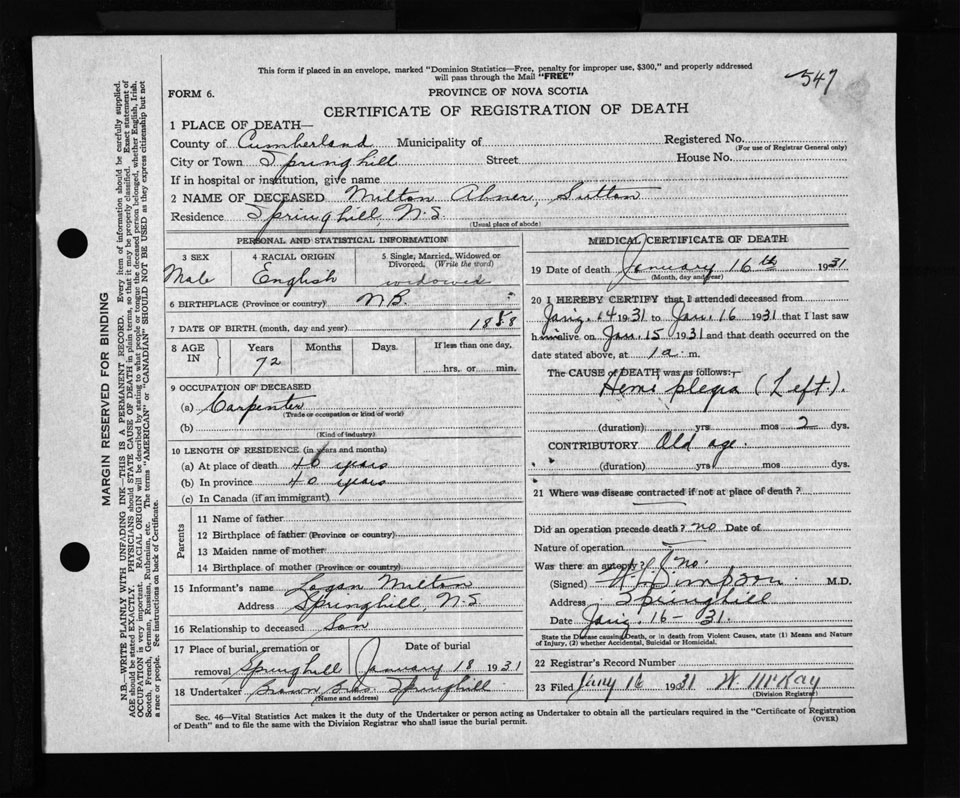 This form if placed in an envelope, marked "Dominion Statistics—Free, penalty for improper use, $300," and properly addressed
will pass through the Mail "FREE"
547
FORM 6.
PROVINCE OF NOVA SCOTIA
CERTIFICATE OF REGISTRATION OF DEATH
1 PLACE OF DEATH—
County of Cumberland Municipality of Registered No.
(For use of Registrar General only)
City or Town Springhill Street House No.
If in hospital or institution, give name
2 NAME OF DECEASED Milton Abner, Sutton
Residence Springhill, N.S.
(Usual place of abode)
PERSONAL AND STATISTICAL INFORMATION
3 SEX 4 RACIAL ORIGIN 5 Single, Married, Widowed or
Divorced. (Write the word)
Male English widowed
6 BIRTHPLACE (Province or country) N.B.
7 DATE OF BIRTH (month, day and year) 1858
8 AGE IN Years Months Days. If less than one day,
72 hrs. or min.
9 OCCUPATION OF DECEASED
(a) Carpenter
(Trade or occupation or kind of work)
(b)
(Kind of industry)
10 LENGTH OF RESIDENCE (in years and months)
(a) At place of death 40 years
(b) In province 40 years
(c) In Canada (if an immigrant)
Parents
11 Name of father
12 Birthplace of father (Province or country)
13 Maiden name of mother
14 Birthplace of mother (Province or country)
15 Informant's name Logan Milton
Address Springhill, N.S.
16 Relationship to deceased Son
17 Place of burial, cremation or Date of burial
removal Springhill January 18 1931
18 Undertaker Brown Bros. Springhill
(Name and address)
MEDICAL CERTIFICATE OF DEATH
19 Date of death January 16th 1931
(Month, day and year)
20 I HEREBY CERTIFY that I attended deceased from
Jany. 4 1931 to Jan. 16 1931 that I last saw
him alive on Jan. 15 1931 and that death occurred on the
date stated above, at 1 a. m.
The CAUSE of DEATH was as follows:
Hemiplegia (Left).
(duration) yrs mos 2 dys.
CONTRIBUTORY Old age.
(duration) yrs mos dys.
21 Where was disease contracted if not at place of death?
Did an operation precede death? no Date of
Nature of operation
Was there an autopsy? no.
(Signed) Simpson M.D.
Address Springhill
Date Jany. 16 - 31.
State the Disease causing Death, or in death from Violent Causes, state (1) Means and Nature
of Injury, (2) whether Accidental, Suicidal or Homicidal.
22 Registrar's Record Number
23 Filed Jany 16 1931 W. McKay
(Division Registrar)
Sec. 46—Vital Statistics Act makes it the duty of the Undertaker or person acting as Undertaker to obtain all the particulars required in the "Certificate of Registration
of Death" and to file the same with the Division Registrar who shall issue the burial permit.
(OVER)
MARGIN RESERVED FOR BINDING
N.B.—WRITE PLAINLY WITH UNFADING INK—THIS IS A PERMANENT RECORD. Every item of information should be carefully supplied.
AGE should be stated EXACTLY. PHYSICIANS should STATE CAUSE OF DEATH in plain terms, so that it may be properly classified. Exact statement of
OCCUPATION is very important. RACIAL ORIGIN will be described by stating to what people or tongue the deceased person belonged, whether English, Irish,
Scotch, French, German, Russian, Ruthenian, etc. The terms "AMERICAN" or "CANADIAN" SHOULD NOT BE USED as they express citizenship but not
a race or people. See instructions on back of Certificate.